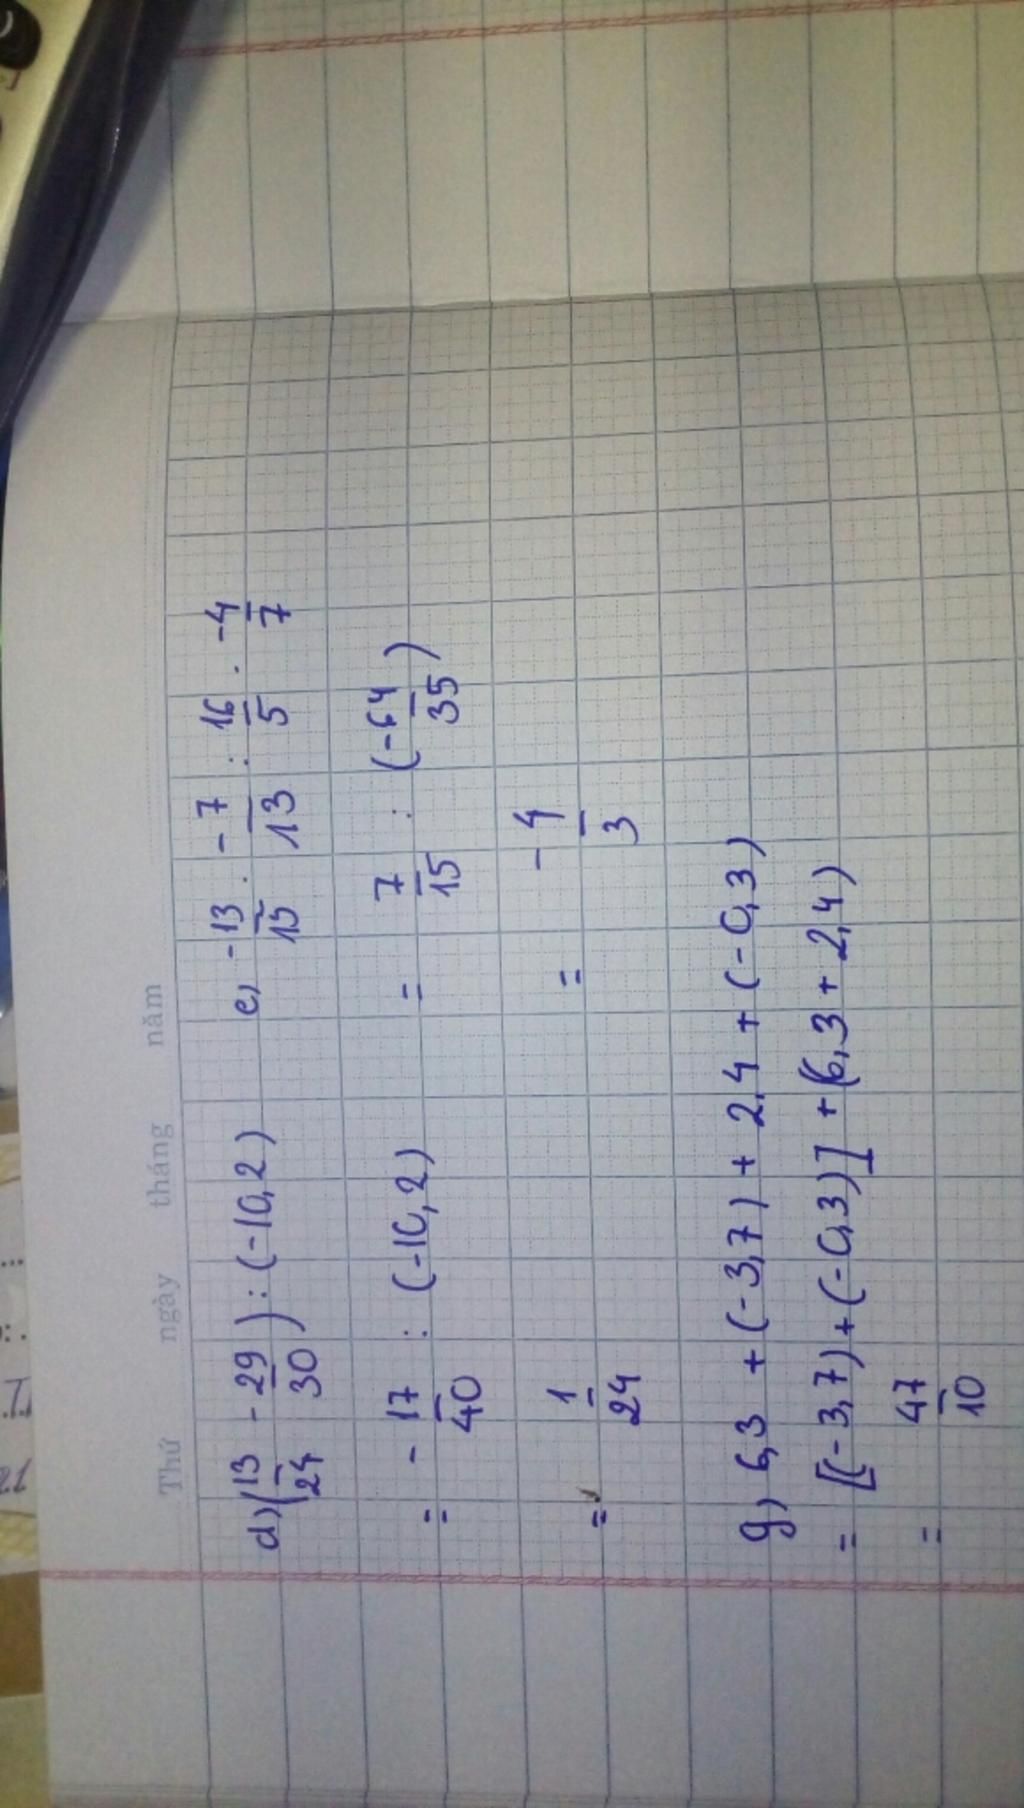 Thứ ngày tháng năm
d) (13/24 - 29/30) : (-10,2)
= - 17/40 : (-10,2)
= 1/24
e, -13/15 . -7/13 : 16/5 . -4/7
= 7/15 : (-64/35)
= -4/3
g, 6,3 + (-3,7) + 2,4 + (-0,3)
= [(-3,7)+(-0,3)] + (6,3 + 2,4)
= 47/10